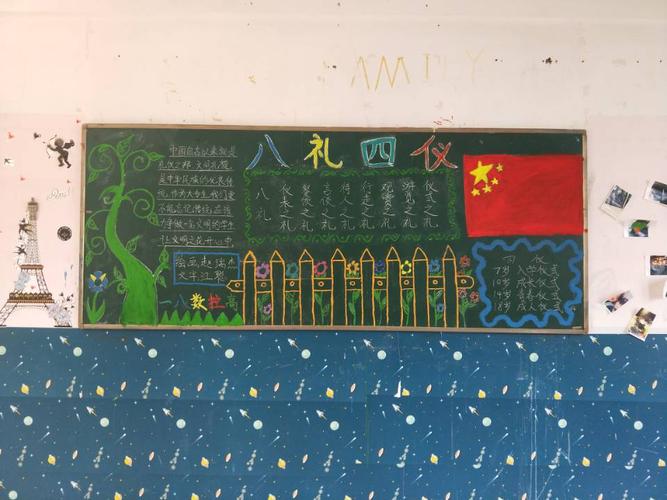 八礼四仪
中国自古以来就是
礼仪之邦,文明礼貌
是中华民族的优良传
统,作为大专生,我们更
不能忘记传统,应该
力争做一名文明的学生
让文明之花开心中
绘画:赵瑞杰
文字:江
一八数控高
八礼
仪表之礼
餐饮之礼
言谈之礼
待人之礼
行走之礼
观赏之礼
游览之礼
仪式之礼
四仪
7岁 入学仪式
10岁 成长仪式
14岁 青春仪式
18岁 成人仪式